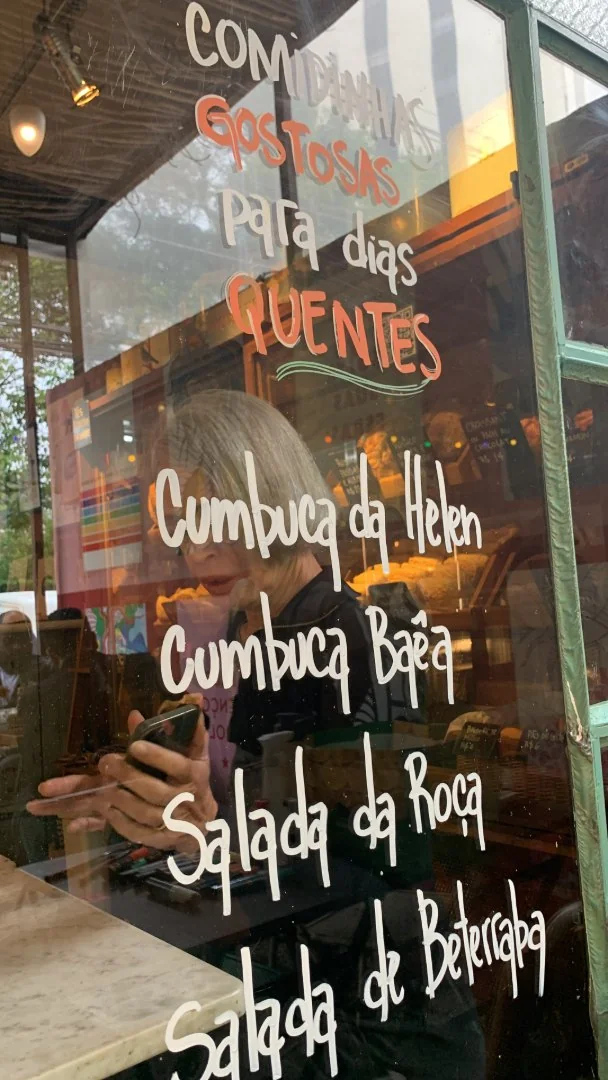 COMIDINHAS
GOSTOSAS
para dias
QUENTES
Cumbuca da Helen
Cumbuca Baêa
Salada da Roça
Salada de Beterraba